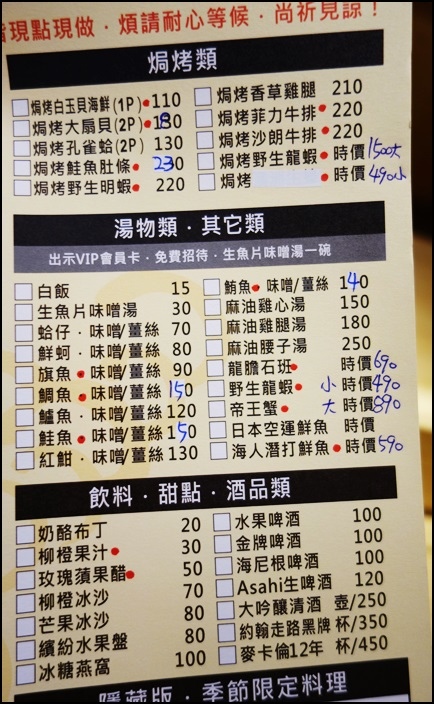 現點現做．煩請耐心等候．尚祈見諒！
焗烤類
焗烤白玉貝海鮮(1P) 110
焗烤大扇貝(2P) 180
焗烤孔雀蛤(2P) 130
焗烤鮭魚肚條 230
焗烤野生明蝦 220
焗烤香草雞腿 210
焗烤菲力牛排 220
焗烤沙朗牛排 220
焗烤野生龍蝦 時價1500大
焗烤 時價490小
湯物類．其它類
出示VIP會員卡．免費招待．生魚片味噌湯一碗
白飯 15
生魚片味噌湯 30
蛤仔．味噌/薑絲 70
鮮蚵．味噌/薑絲 80
旗魚．味噌/薑絲 90
鯛魚．味噌/薑絲 150
鱸魚．味噌/薑絲 120
鮭魚．味噌/薑絲 150
紅魽．味噌/薑絲 130
鮪魚．味噌/薑絲 140
麻油雞心湯 150
麻油雞腿湯 180
麻油腰子湯 250
龍膽石班 時價690
野生龍蝦 小 時價490
帝王蟹 大 時價890
日本空運鮮魚 時價
海人潛打鮮魚 時價590
飲料．甜點．酒品類
奶酪布丁 20
柳橙果汁 30
玫瑰蘋果醋 50
柳橙冰沙 70
芒果冰沙 80
繽紛水果盤 80
冰糖燕窩 100
水果啤酒 100
金牌啤酒 100
海尼根啤酒 100
Asahi生啤酒 120
大吟釀清酒 壺/250
約翰走路黑牌 杯/350
麥卡倫12年 杯/450
隱藏版．季節限定料理